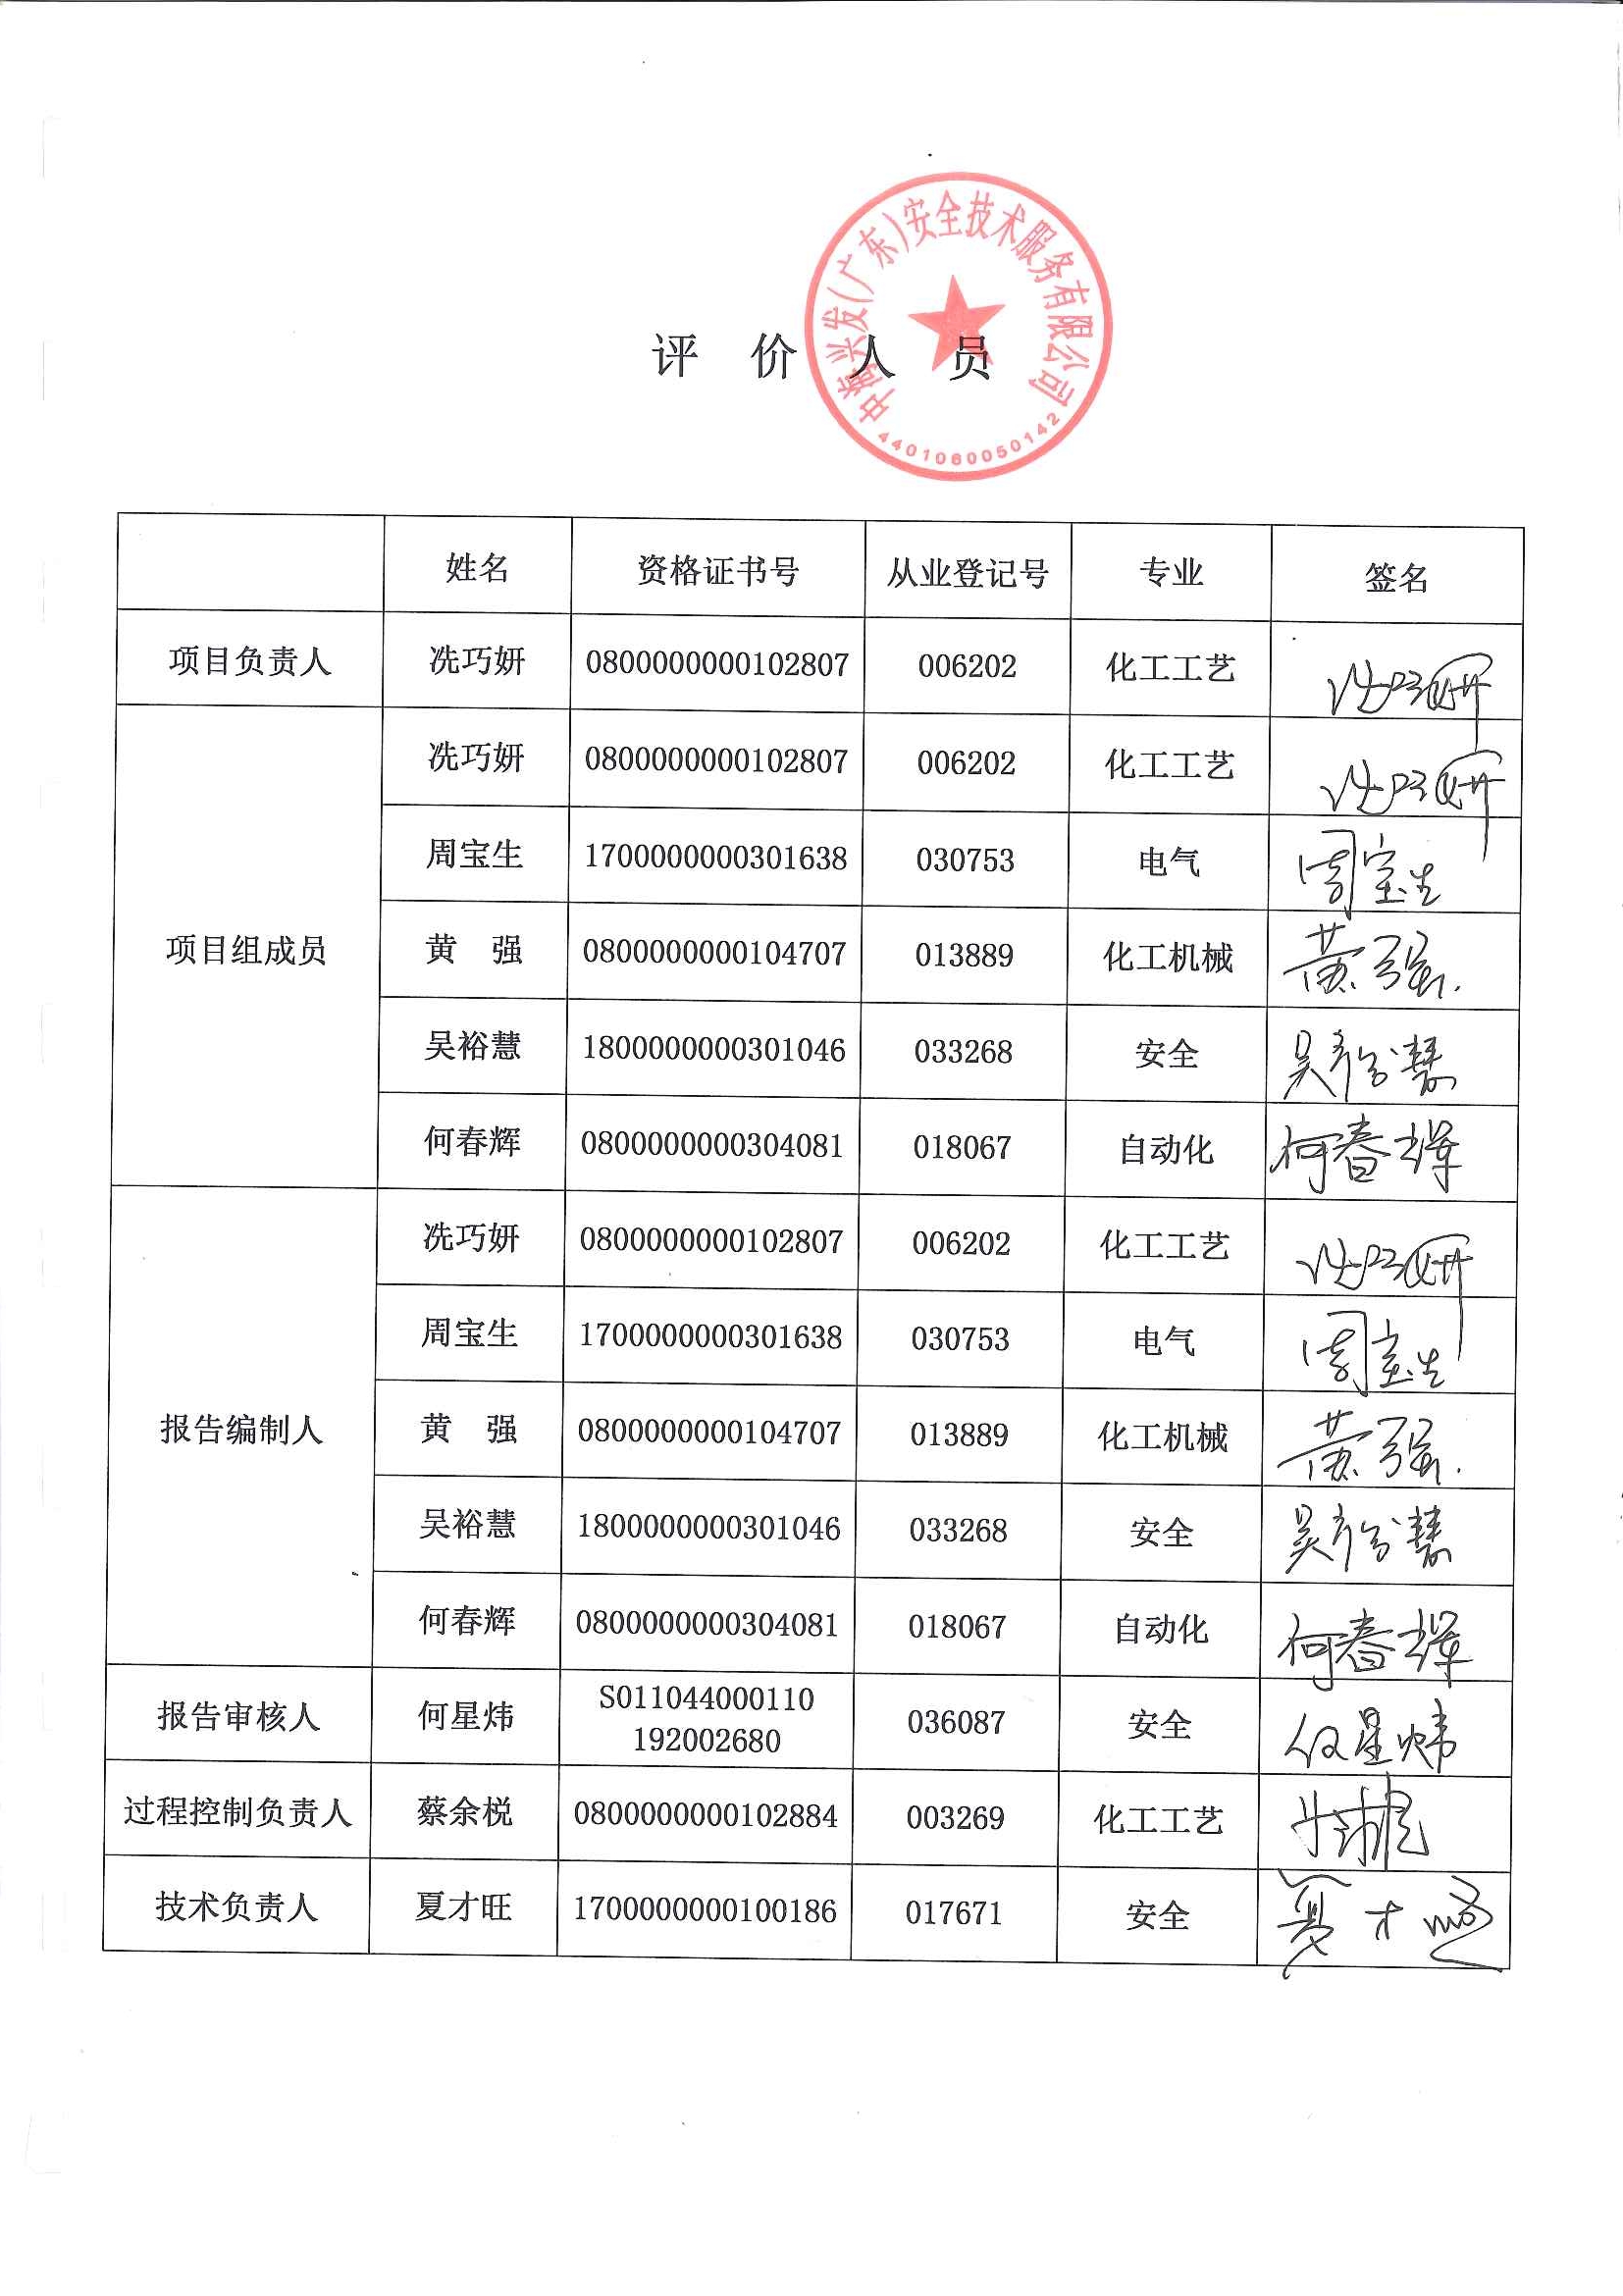 中海兴发(广东)安全技术服务有限公司
4401060050142
评价人员
姓名 资格证书号 从业登记号 专业 签名
项目负责人 冼巧妍 0800000000102807 006202 化工工艺 冼巧妍
项目组成员 冼巧妍 0800000000102807 006202 化工工艺 冼巧妍
周宝生 1700000000301638 030753 电气 周宝生
黄 强 0800000000104707 013889 化工机械 黄强
吴裕慧 1800000000301046 033268 安全 吴裕慧
何春辉 0800000000304081 018067 自动化 何春辉
报告编制人 冼巧妍 0800000000102807 006202 化工工艺 冼巧妍
周宝生 1700000000301638 030753 电气 周宝生
黄 强 0800000000104707 013889 化工机械 黄强
吴裕慧 1800000000301046 033268 安全 吴裕慧
何春辉 0800000000304081 018067 自动化 何春辉
报告审核人 何星炜 S011044000110 036087 安全 何星炜
192002680
过程控制负责人 蔡余棁 0800000000102884 003269 化工工艺
技术负责人 夏才旺 1700000000100186 017671 安全 夏才旺